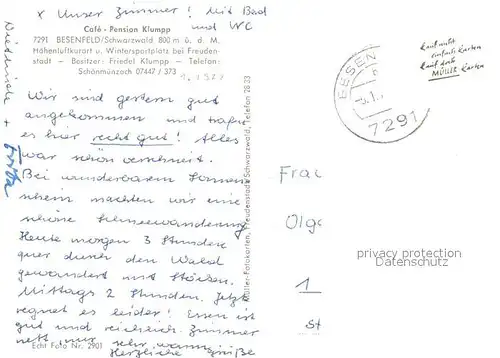 x Unser Zimmer! Mit Bad
und WC
Café - Pension Klumpp
7291 BESENFELD/Schwarzwald 800 m ü. d. M.
Höhenluftkurort u. Wintersportplatz bei Freuden-
stadt — Besitzer: Friedel Klumpp — Telefon:
Schönmünzach 07447 / 373
Wir sind gestern gut
angekommen und
es hier recht gut! Alles
war schön verschneit.
Bei wunderbarem Sonnen-
schein machten wir eine
schöne Schneewanderung
Heute morgen 3 Stunden
quer durch den Wald
gewandert mit Stöcken.
Mittags 2 Stunden. Jetzt
regnet es leider! Essen ist
gut und reichlich. Zimmer
nett, nur sehr warm
Herzliche Grüße
Echt Foto Nr. 2901
Müller-Fotokarten, Freudenstadt/Schwarzwald, Telefon 28 33
BESEN
7291
kauf nicht
einfach Karten
kauf doch
MÜLLER-Karten
Frau
Olga
1
privacy protection
Datenschutz